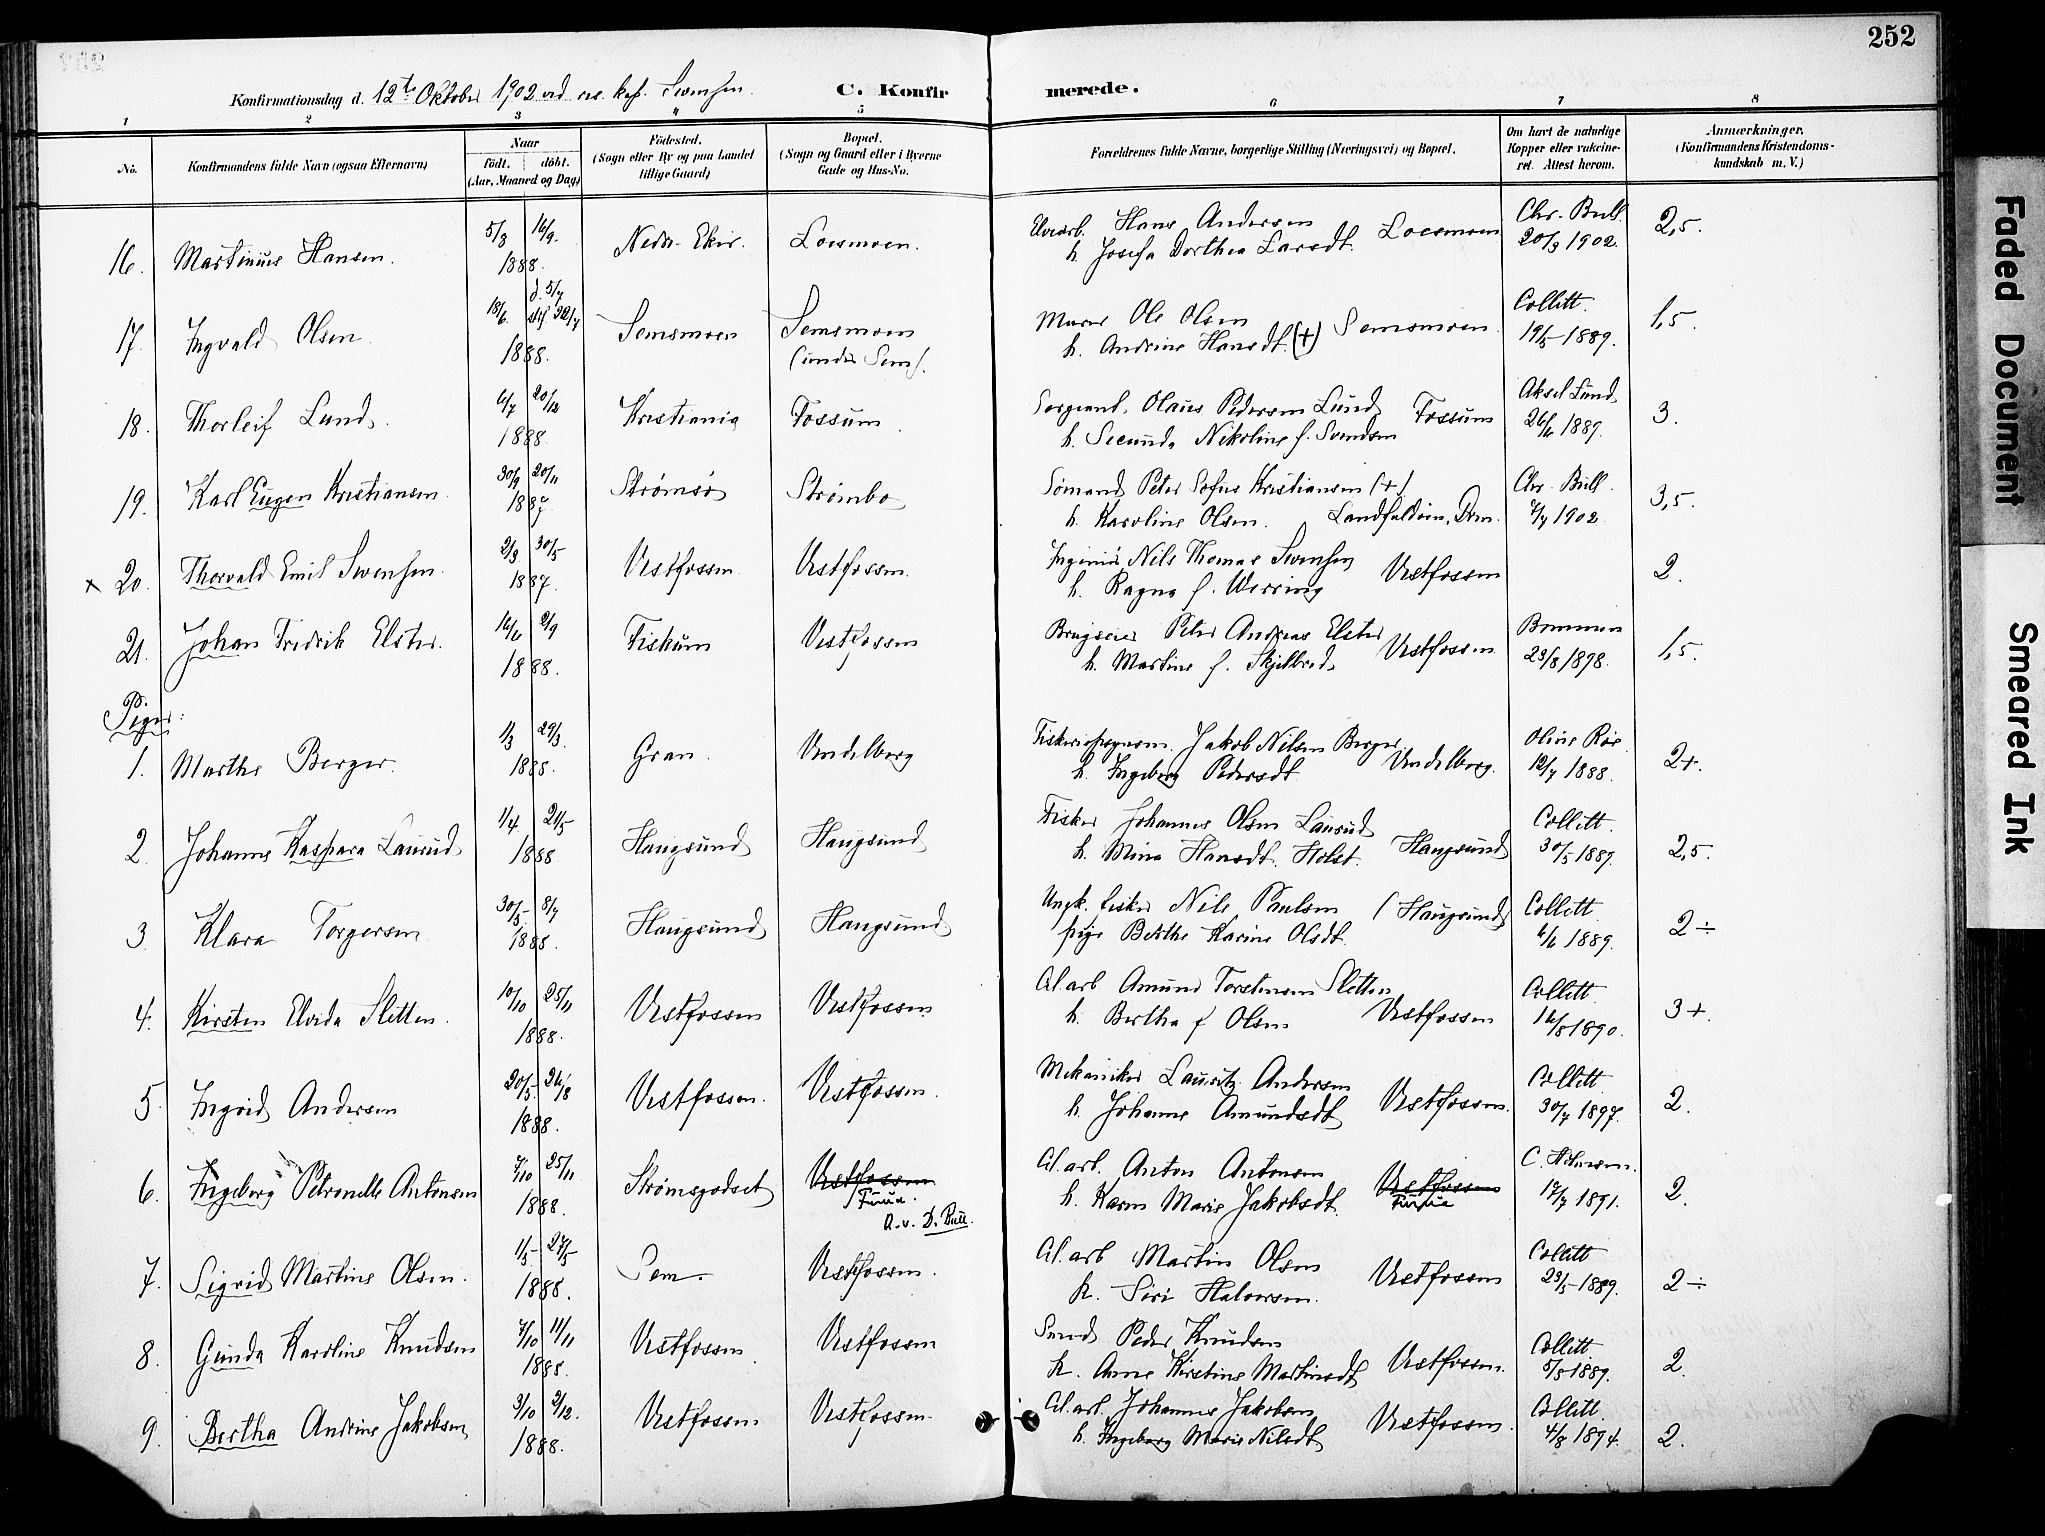 252
Konfirmationsdag d. 12te Oktober 1902 ved res. kap. Svensen.
C. Konfirmerede.
1 2 3 4 5 6 7 8
No.
Konfirmandens fulde Navn (ogsaa Efternavn)
Naar
født. døbt.
(Aar, Maaned og Dag)
Fødested.
(Sogn eller By og paa Landet
tillige Gaard)
Bopæl.
(Sogn og Gaard eller i Byerne
Gade og Hus-No.
Forældrenes fulde Navne, borgerlige Stilling (Næringsvei) og Bopæl.
Om havt de naturlige
Kopper eller vakcine-
ret. Attest herom.
Anmærkninger.
(Konfirmandens Kristendoms-
kundskab m. V.)
16. Martinus Hansen. 5/3 16/9. 1888. Nedr. Eker. Loesmoen. Hans Andersen Loesmoen Chr. Bull. 2,5.
h. Josefa Dorthea Larsdt. 20/3 1902.
17. Ingvald Olsen. 18/6. 1888. Semsmoen Semsmoen Murer Ole Olsen Semsmoen. Collett. 1,5.
(under Sem). h. Andrine Hansdt. (+) 19/5 1889.
18. Thorleif Lund. 6/7 20/12 1888. Kristiania Fossum Sergeant Olaus Pedersen Lund Fossum Aksel Lund 3.
h. Secunda Nikoline f. Svendsen 26/6 1889.
19. Karl Eugen Kristiansen 30/9 20/11 1887 Strømsø Strømbo Sømand Peter Sofus Kristiansen (+) Chr. Bull. 3,5.
h. Karoline Olsen. Drm. 7/7 1902.
x 20. Thorvald Emil Svensen. 2/3 30/5 1887. Vestfossen Vestfossen. Ingeniør Nils Thomas Svensen Vestfossen 2.
h. Ragna f. Werring
21. Johan Fredrik Elster. 16/6 2/9 1888. Fiskum Vestfossen Brugseier Peter Andreas Elster Vestfossen 1,5.
h. Martine f. Skjelbred 23/8 1898.
Piger:
1. Marthe Berger. 1/3 29/3. 1888. Gran. Vendelborg Jakob Nilsen Berger Vendelborg. Oline Røe 2+.
h. Ingeborg Pedersdt. 12/7 1888.
2. Johanne Kaspara Laurud 1/4 21/5 1888 Haugsund Haugsund Fisker Johannes Olsen Laurud Haugsund Collett. 2,5.
h. Mina Hansdt. Holst. 30/5 1889.
3. Klara Torgersen 30/5 8/7 1888. Haugsund Haugsund Ungk. fisker Nils Paulsen (Haugsund) Collett. 2÷
pige Berthe Karine Olsdt. 6/6 1889.
4. Kirsten Elvida Sletten. 10/10 25/11 1888. Vestfossen Vestfossen Cl. arb. Amund Torstensen Sletten Vestfossen Collett. 3+.
h. Bertha f Olsen 16/8 1890.
5. Ingrid Andersen 20/5. 26/8 1888. Vestfossen. Vestfossen. Mekaniker Lauritz Andersen Vestfossen. Collett 2.
h. Johanne Amundsdt 30/7 1897.
6. Ingeborg Petronelle Antonsen 7/10 25/11 1888. Strømsgodset Vestfossen Cl. arb. Anton Antonsen Vestfossen 2.
Furua. h. Karen Marie Jakobsdt. Furua 17/7 1891.
A. v. D. Bull.
7. Sigrid Martine Olsen. 1/3 27/5 1888. Sem. Vestfossen. Cl. arb Martin Olsen Vestfossen Collett 2÷
h. Siri Halvorsen. 23/5 1889.
8. Gunda Karoline Knudsen 7/10 11/11 1888. Vestfossen Vestfossen Smed Peder Knudsen Vestfossen. Collett 2.
h. Anne Kirstine Martinsdt 5/8 1889.
9. Bertha Andrine Jakobsen 3/10 2/12. 1888. Vestfossen Vestfossen. Cl. arb. Johannes Jakobsen Vestfossen. Collett. 2.
h. Ingeborg Marie Nilsdt 4/8 1894.
Faded Document
Smeared Ink